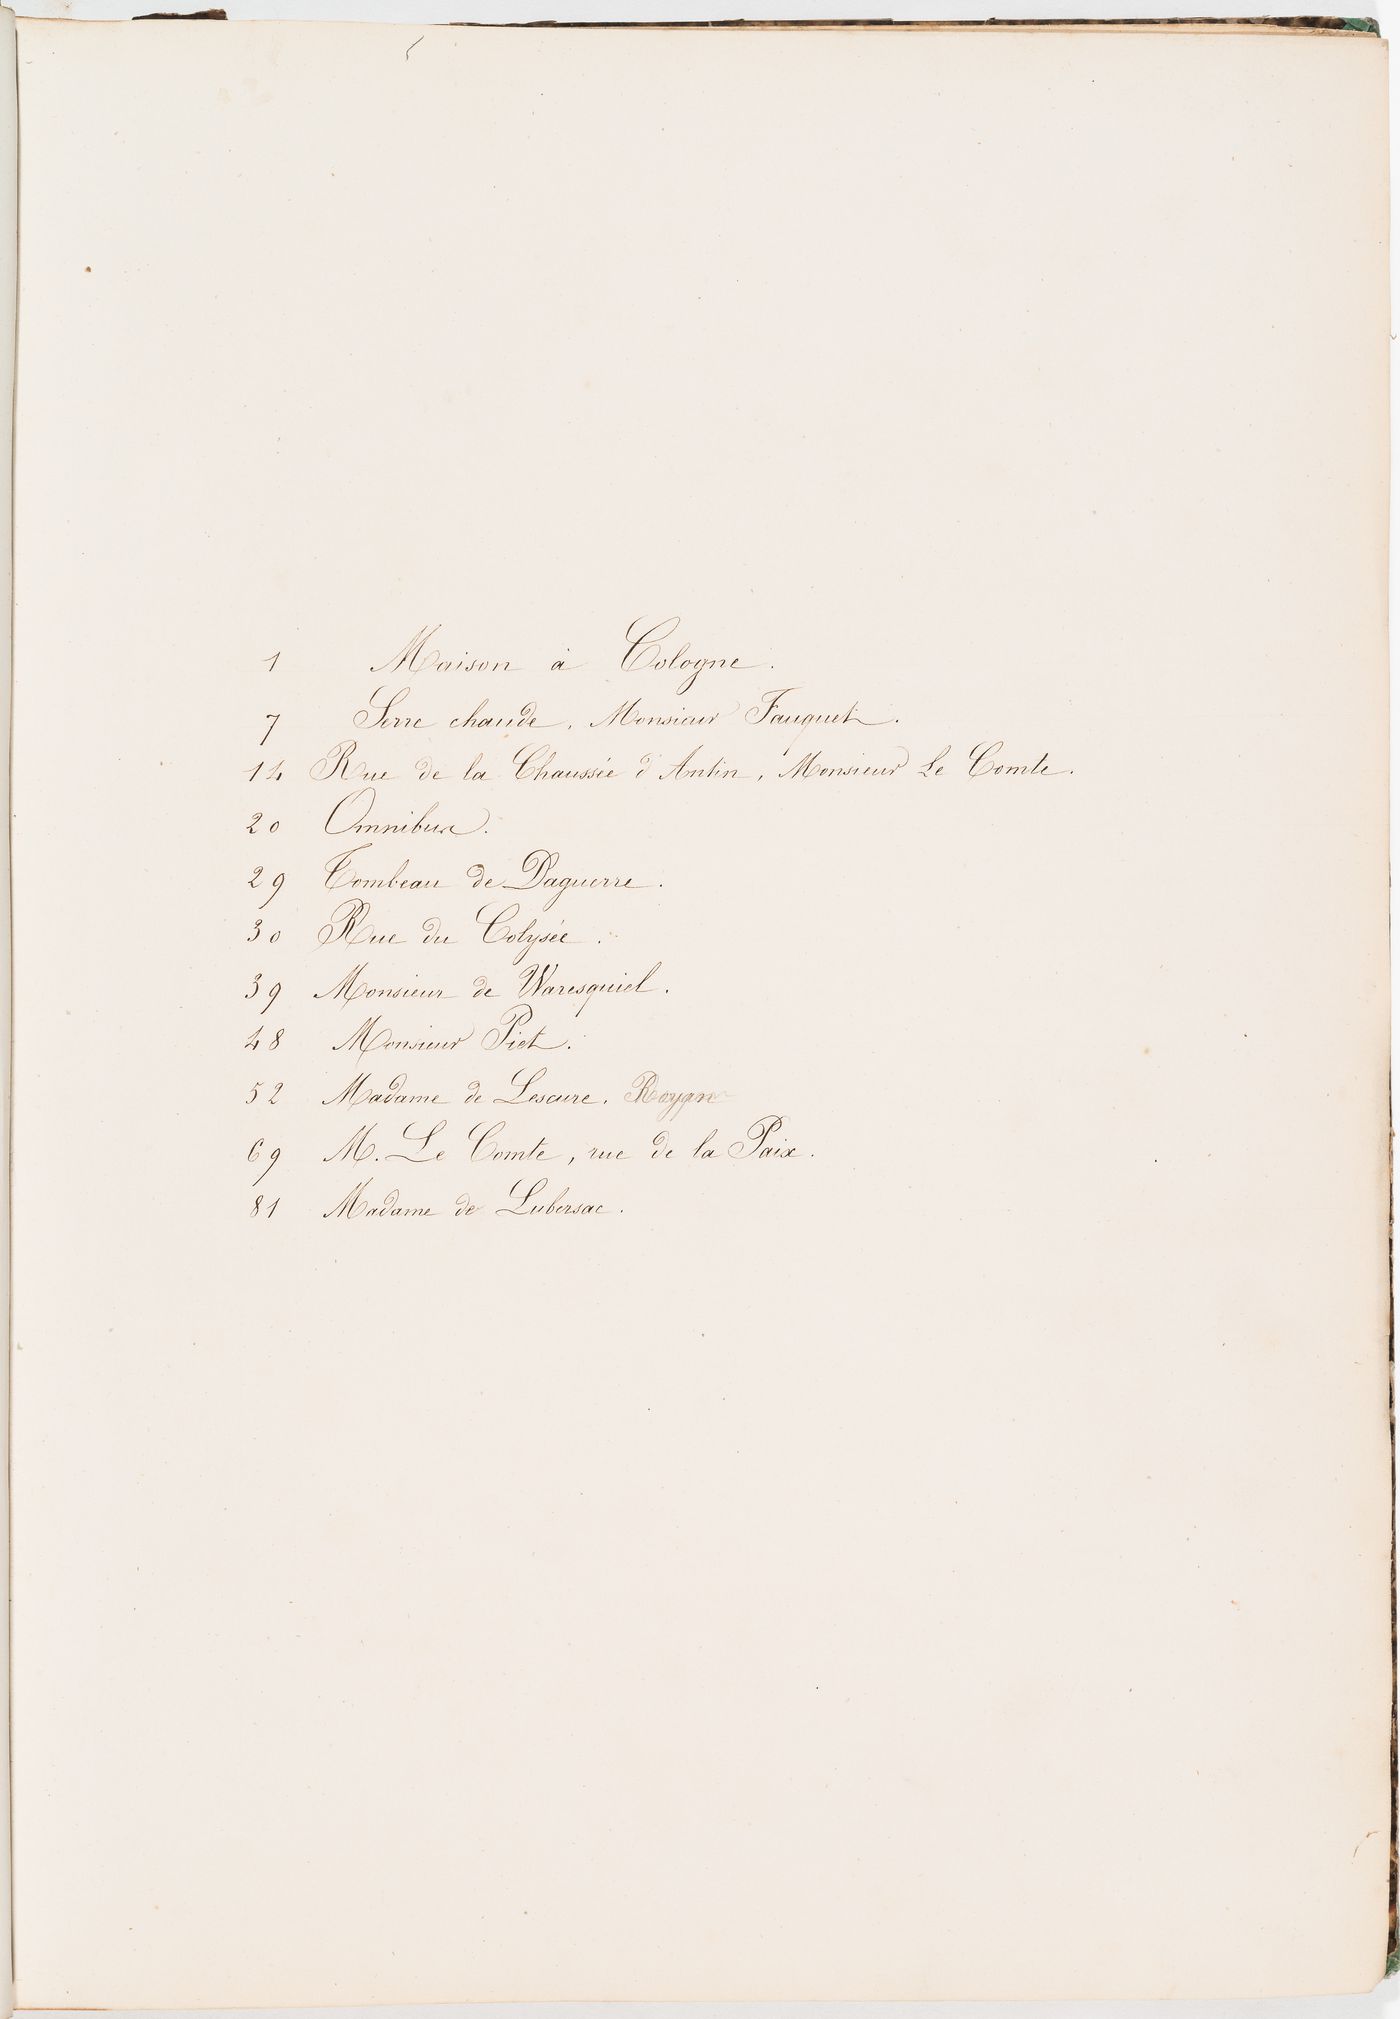 1 Maison à Cologne.
7 Serre chaude, Monsieur Fauquet.
14 Rue de la Chaussée d'Antin, Monsieur Le Comte.
20 Omnibus.
29 Tombeau de Daguerre.
30 Rue du Colysée.
39 Monsieur de Waresquiel.
48 Monsieur Piet.
52 Madame de Lescure.
69 M. Le Comte, rue de la Paix.
81 Madame de Lubersac.